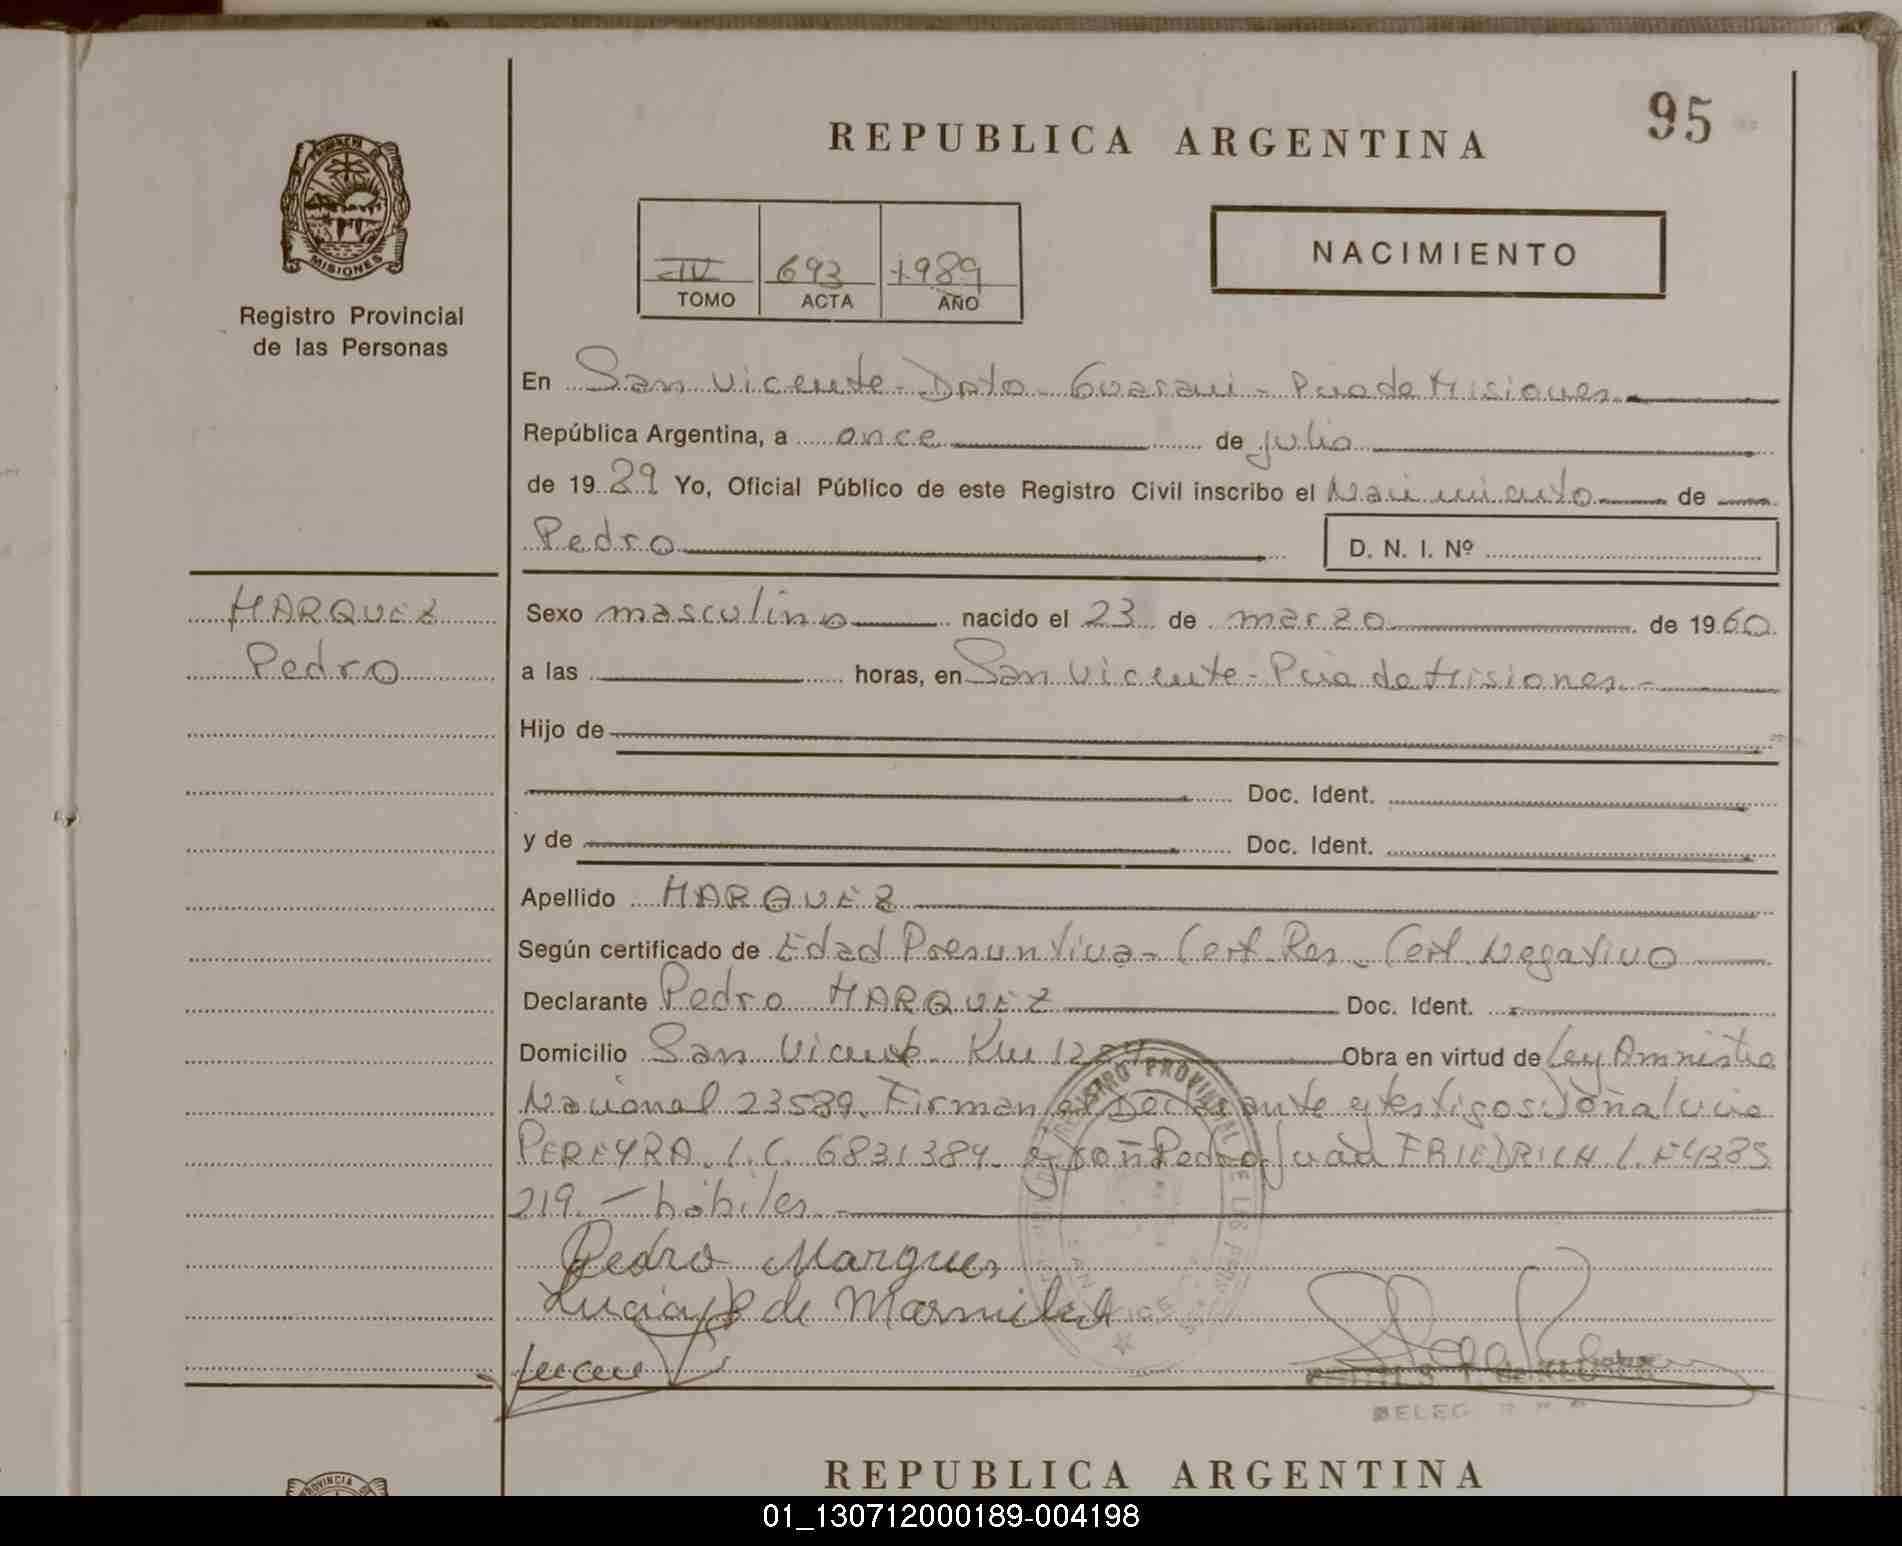 95
REPUBLICA ARGENTINA
PROVINCIA DE
MISIONES
Registro Provincial
de las Personas
IV 693 1989
TOMO ACTA AÑO
NACIMIENTO
En San Vicente - Dpto - Guarani - Pcia de Misiones
República Argentina, a once de julio
de 1989 Yo, Oficial Público de este Registro Civil inscribo el Nacimiento de
Pedro
D. N. I. Nº
MARQUEZ
Pedro
Sexo masculino nacido el 23 de marzo de 1960
a las horas, en San Vicente - Pcia de Misiones -
Hijo de
Doc. Ident.
y de Doc. Ident.
Apellido MARQUEZ
Según certificado de Edad Presuntiva - Cert. Res. Cert. Negativo
Declarante Pedro MARQUEZ Doc. Ident.
Domicilio San Vicente Km Obra en virtud de Ley Amnistia
Nacional 23589. Firman el Declarante y testigos: Doña Lucia
PEREYRA. L.C. 6831389 y Don Pedro Juan FRIEDRICH L.E 4385
219. - hábiles
REGISTRO PROVINCIAL DE LAS PERSONAS
Pedro Marques
Lucia P de
DELEG
REPUBLICA ARGENTINA
PROVINCIA
01_130712000189-004198